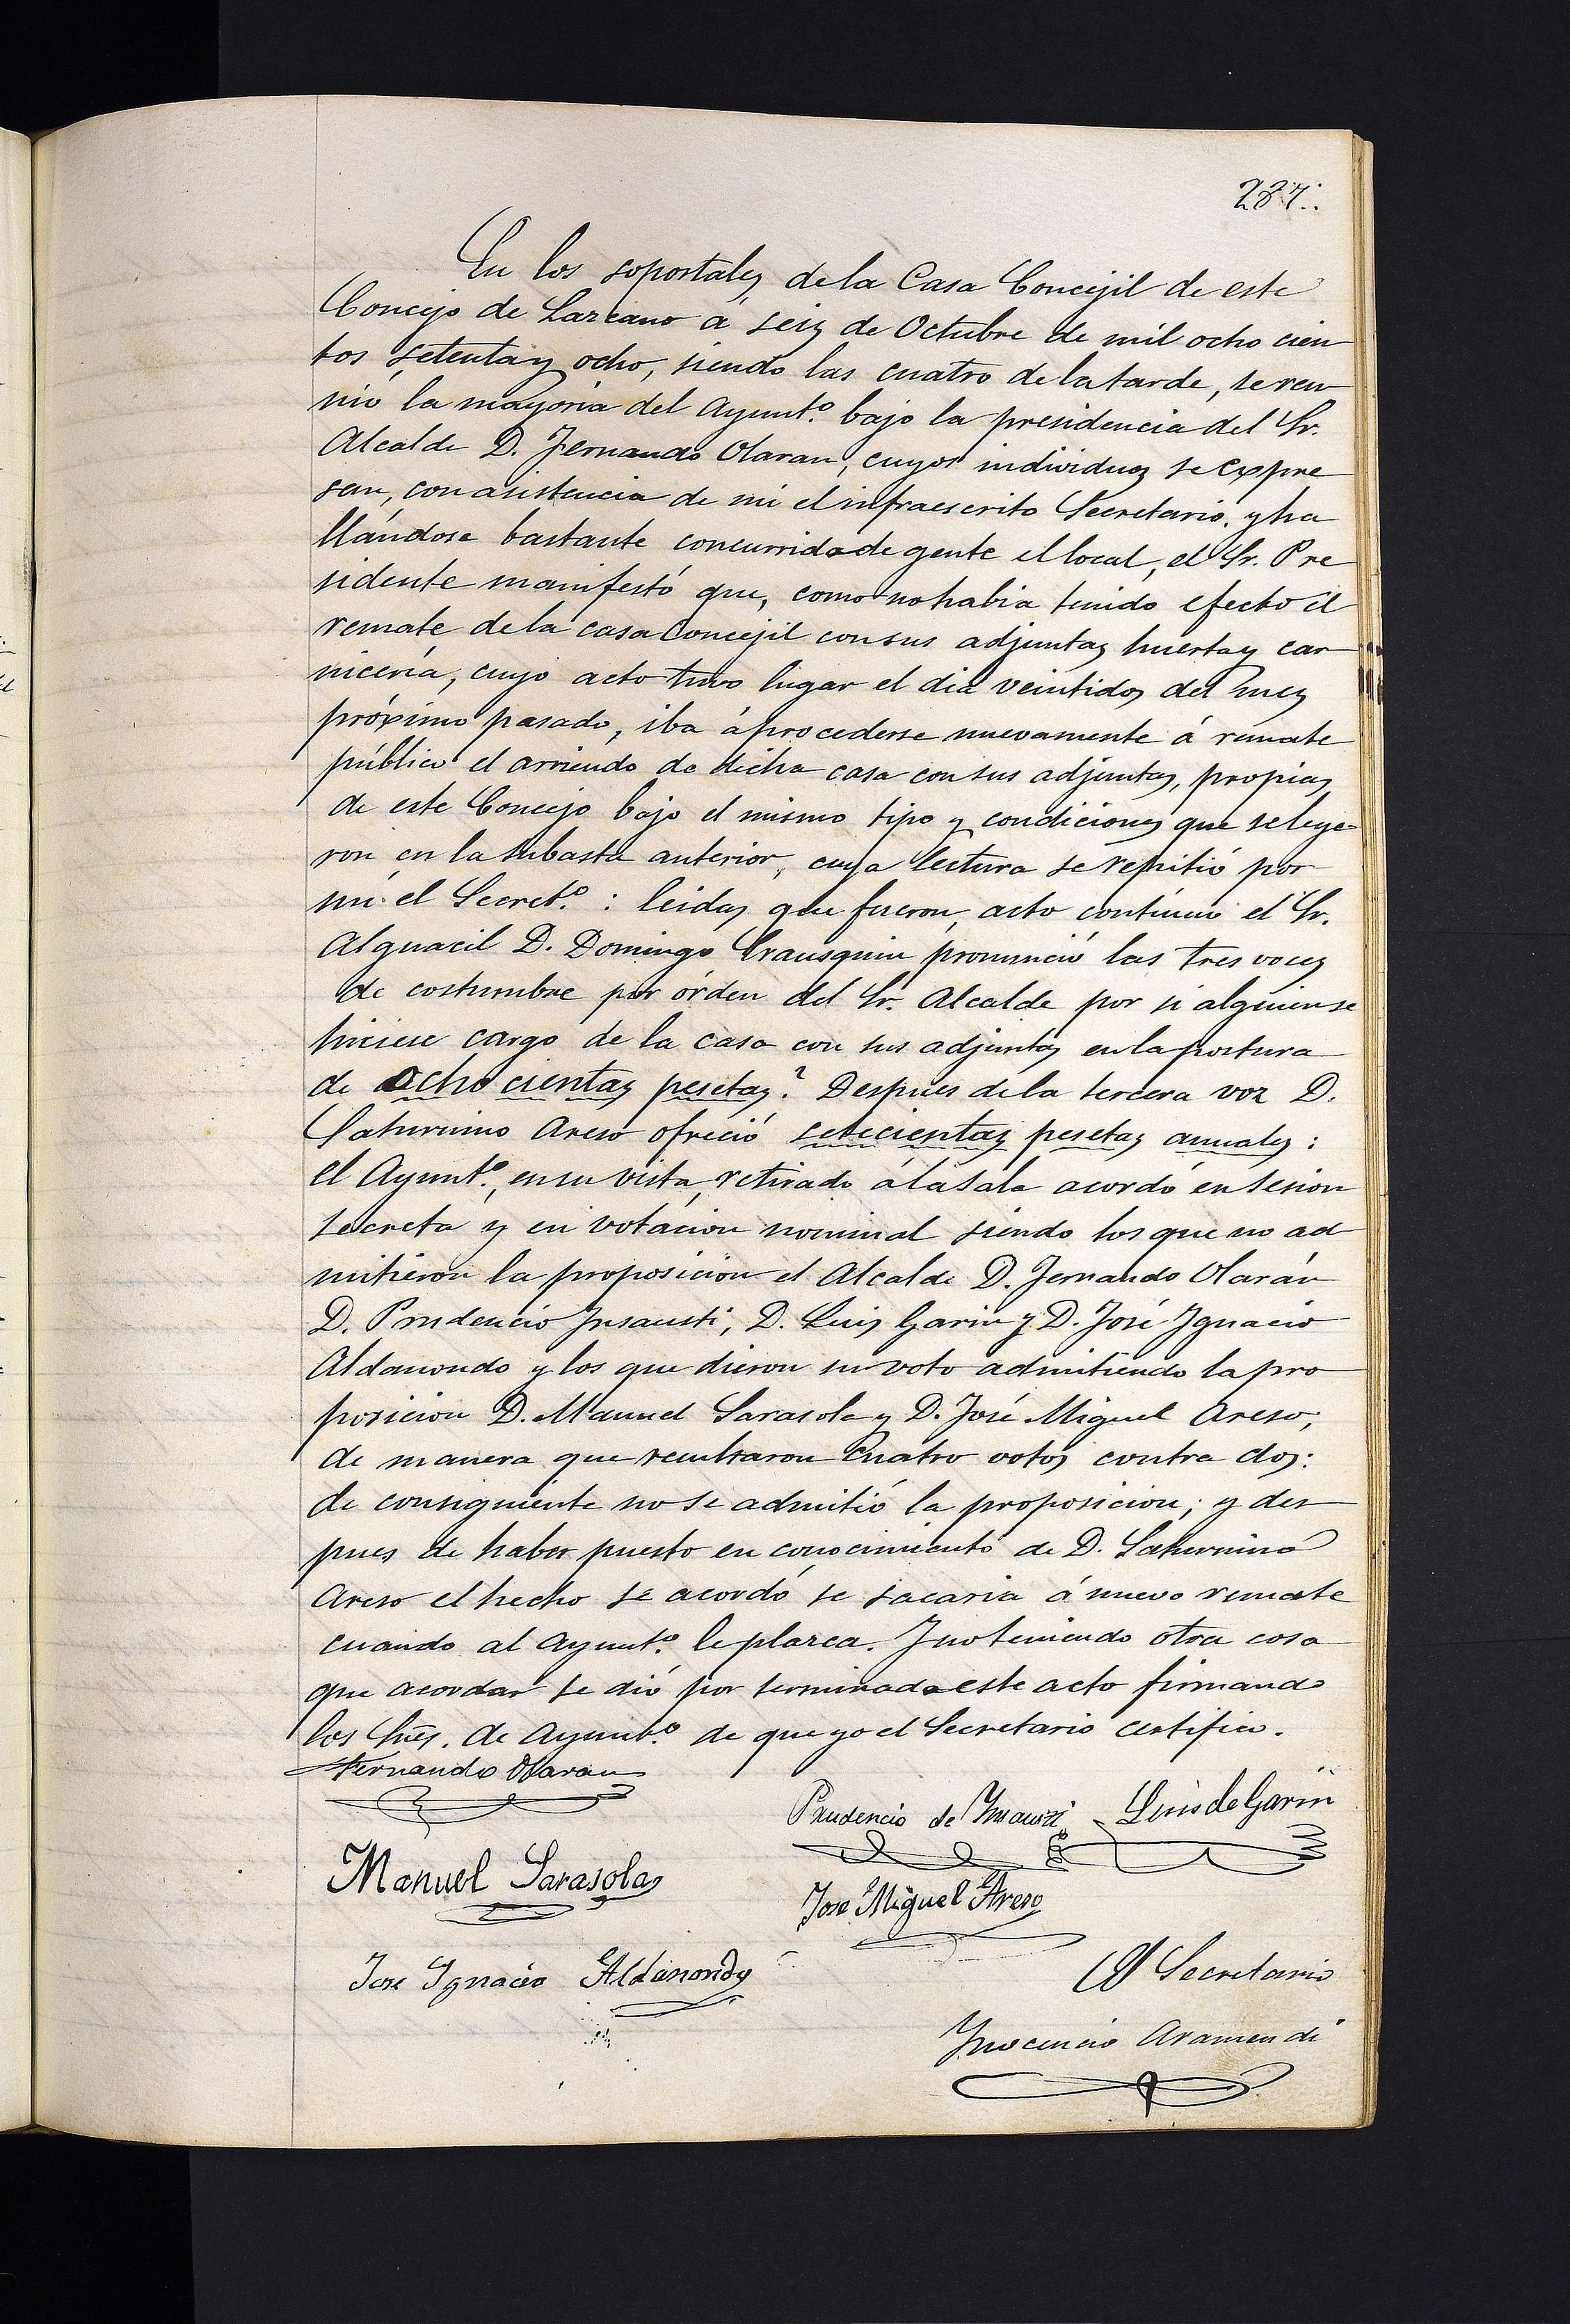 287.
En los soportales de la Casa Concejil de este
Concejo de Lazcano á seis de Octubre de mil ocho cien
tos setenta y ocho, siendo las cuatro de la tarde, se reu
nió la mayoría del Ayunt.º bajo la presidencia del Sr.
Alcalde D. Fernando Olaran, cuyos individuos se expre
san, con asistencia de mi el infraescrito Secretario, y ha
llándose bastante concurrido de gente el local, el Sr. Pre
sidente manifestó que, como no habia tenido efecto el
remate de la casa Concejil con sus adjuntas huerta y car
nicería, cuyo acto tuvo lugar el dia veintidos del mes
próximo pasado, iba á procederse nuevamente á remate
público el arriendo de dicha casa con sus adjuntas, propias
de este Concejo bajo el mismo tipo y condiciones que se leye
ron en la subasta anterior, cuya lectura se repitió por
mi el Secret.º: leidas que fueron, acto contínuo el Sr.
Alguacil D. Domingo Irausquin pronunció las tres voces
de costumbre por órden del Sr. Alcalde por si alguien se
hiciese cargo de la casa con sus adjuntas en la postura
de ocho cientas pesetas? Despues de la tercera voz D.
Saturnino Areso ofreció setecientas pesetas anuales:
el Ayunt.º, en su vista, retirado á la sala acordó en sesion
secreta y en votacion nominal siendo los que no ad
mitieron la proposicion el Alcalde D. Fernando Olarán
D. Prudencio Insausti, D. Luis Garin y D. José Ignacio
Aldanondo y los que dieron su voto admitiendo la pro
posicion D. Manuel Sarasola y D. José Miguel Areso;
de manera que resultaron cuatro votos contra dos:
de consiguiente no se admitió la proposicion; y des
pues de haber puesto en conocimiento de D. Saturnino
Areso el hecho se acordó se sacaria á nuevo remate
cuando al Ayunt.º le plazca. Y no teniendo otra cosa
que acordar se dió por terminado este acto firmando
los Sres. de Ayunt.º de que yo el Secretario certifico.
Fernando Olaran
Prudencio de Insausti Luis de Garin
Manuel Sarasola
Jose Miguel Areso
Jose Ignacio Aldanondo
El Secretario
Inocencio Aramendi